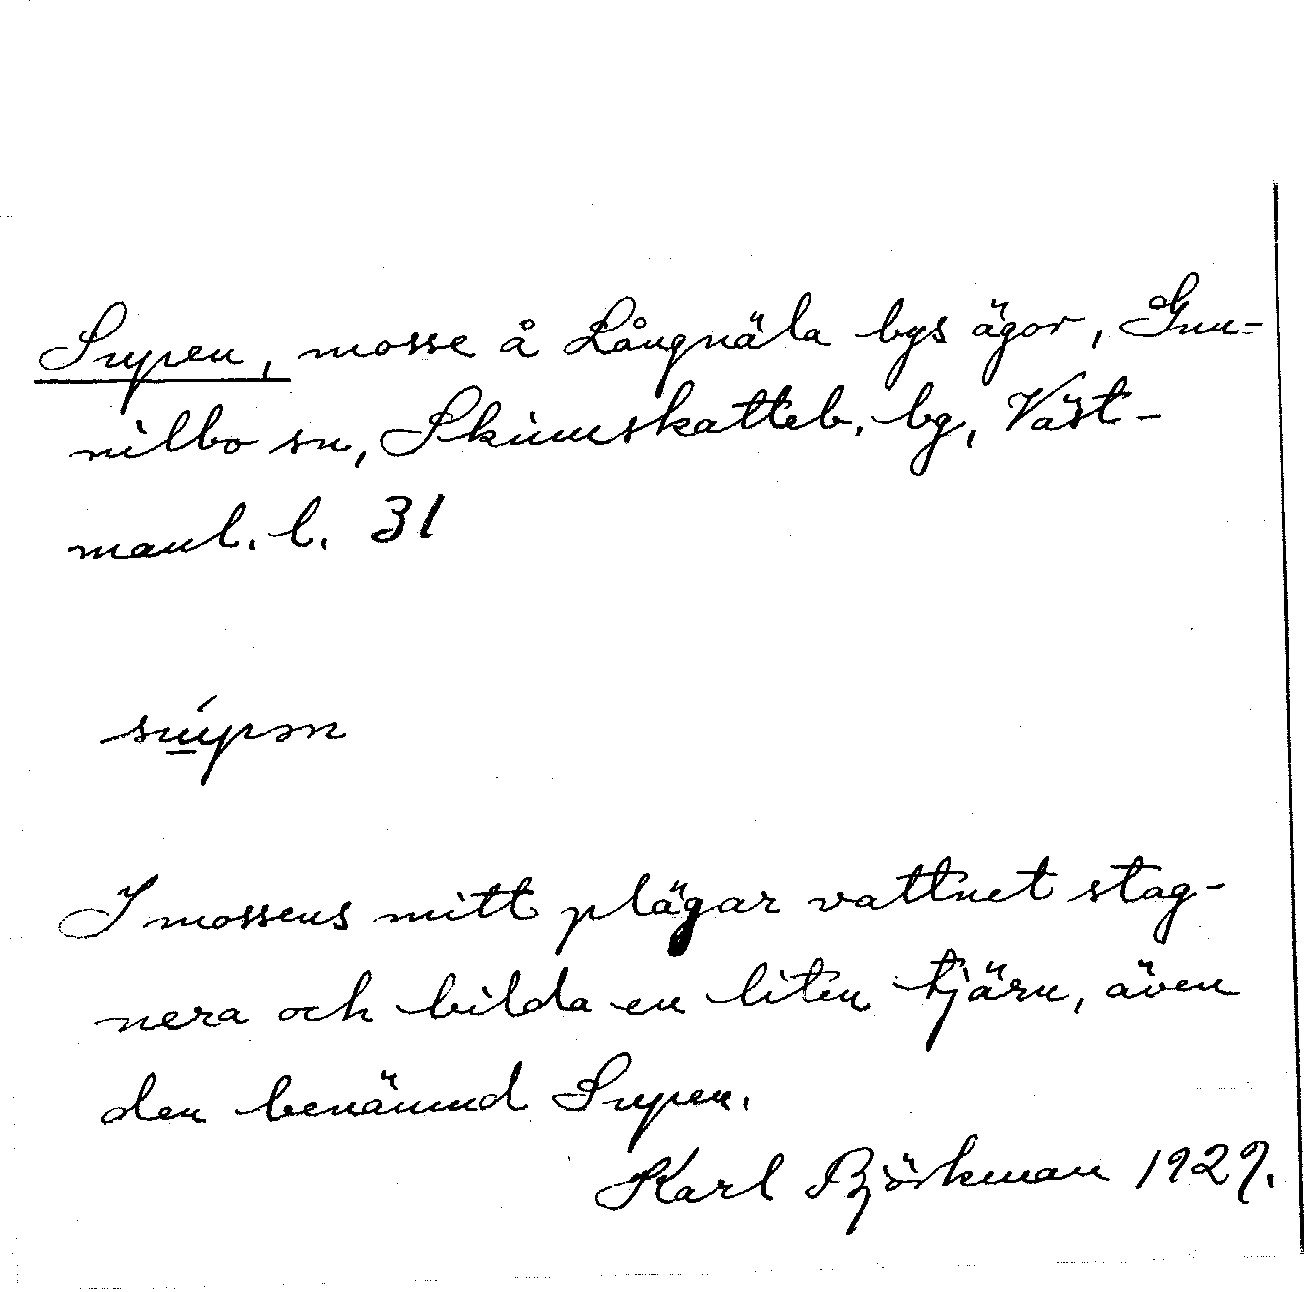 Supen, mosse å Långnäla bys ägor, Gun-
nilbo sn, Skinnskatteb. bg, Väst-
manl. l. 31
I mossens mitt plägar vattnet stag-
nera och bilda en liten tjärn, även
den benämnd Supen.
Karl Björkman 1929.